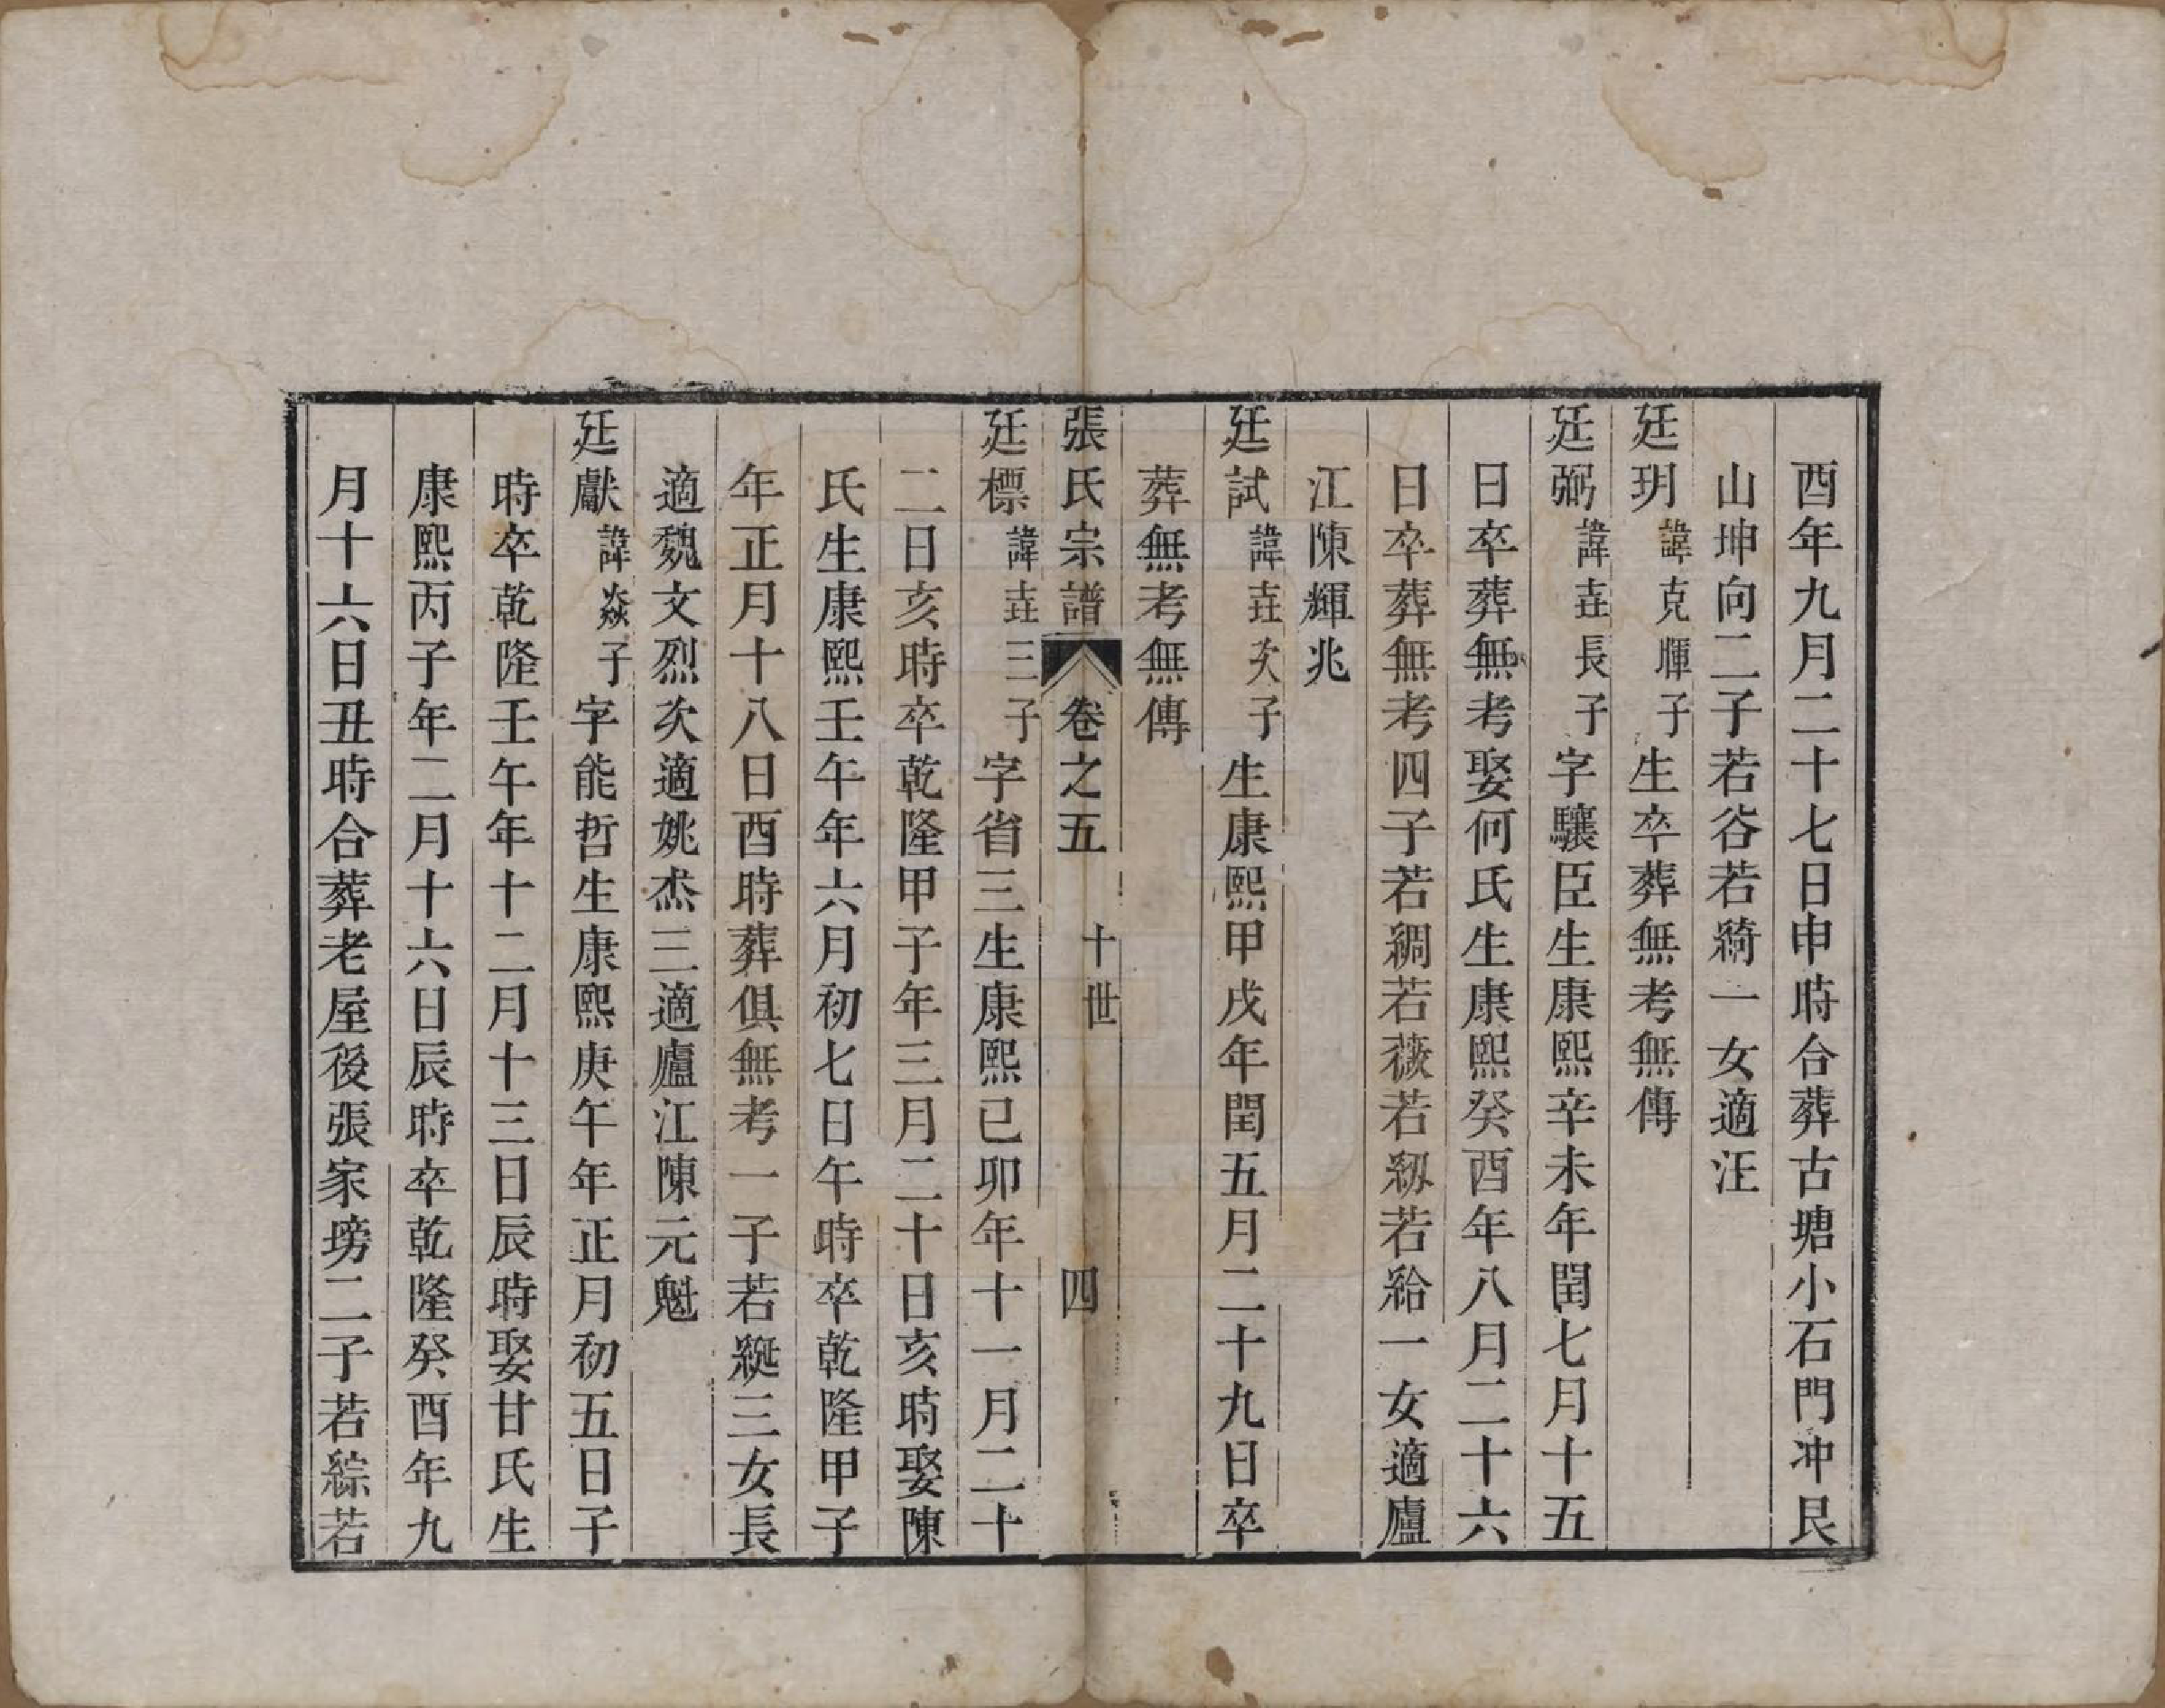 酉年九月二十七日申時合葬古塘小石門冲艮
山坤向二子若谷若綺一女適汪
廷玥諱克煇子生卒葬無考無傳
廷弼諱壵長子字驤臣生康熙辛未年閏七月十五
日卒葬無考娶何氏生康熙癸酉年八月二十六
日卒葬無考四子若綢若薇若紉若給一女適廬
江陳輝兆
廷試諱壵次子生康熙甲戌年閏五月二十九日卒
葬無考無傳
張氏宗譜 卷之五 十世 四
廷標諱壵三子字省三生康熙已卯年十一月二十
二日亥時卒乾隆甲子年三月二十日亥時娶陳
氏生康熙壬午年六月初七日午時卒乾隆甲子
年正月十八日酉時葬俱無考一子若綖三女長
適魏文烈次適姚焘三適廬江陳元魁
廷獻諱焱子字能哲生康熙庚午年正月初五日子
時卒乾隆壬午年十二月十三日辰時娶甘氏生
康熙丙子年二月十六日辰時卒乾隆癸酉年九
月十六日丑時合葬老屋後張家塝二子若綜若